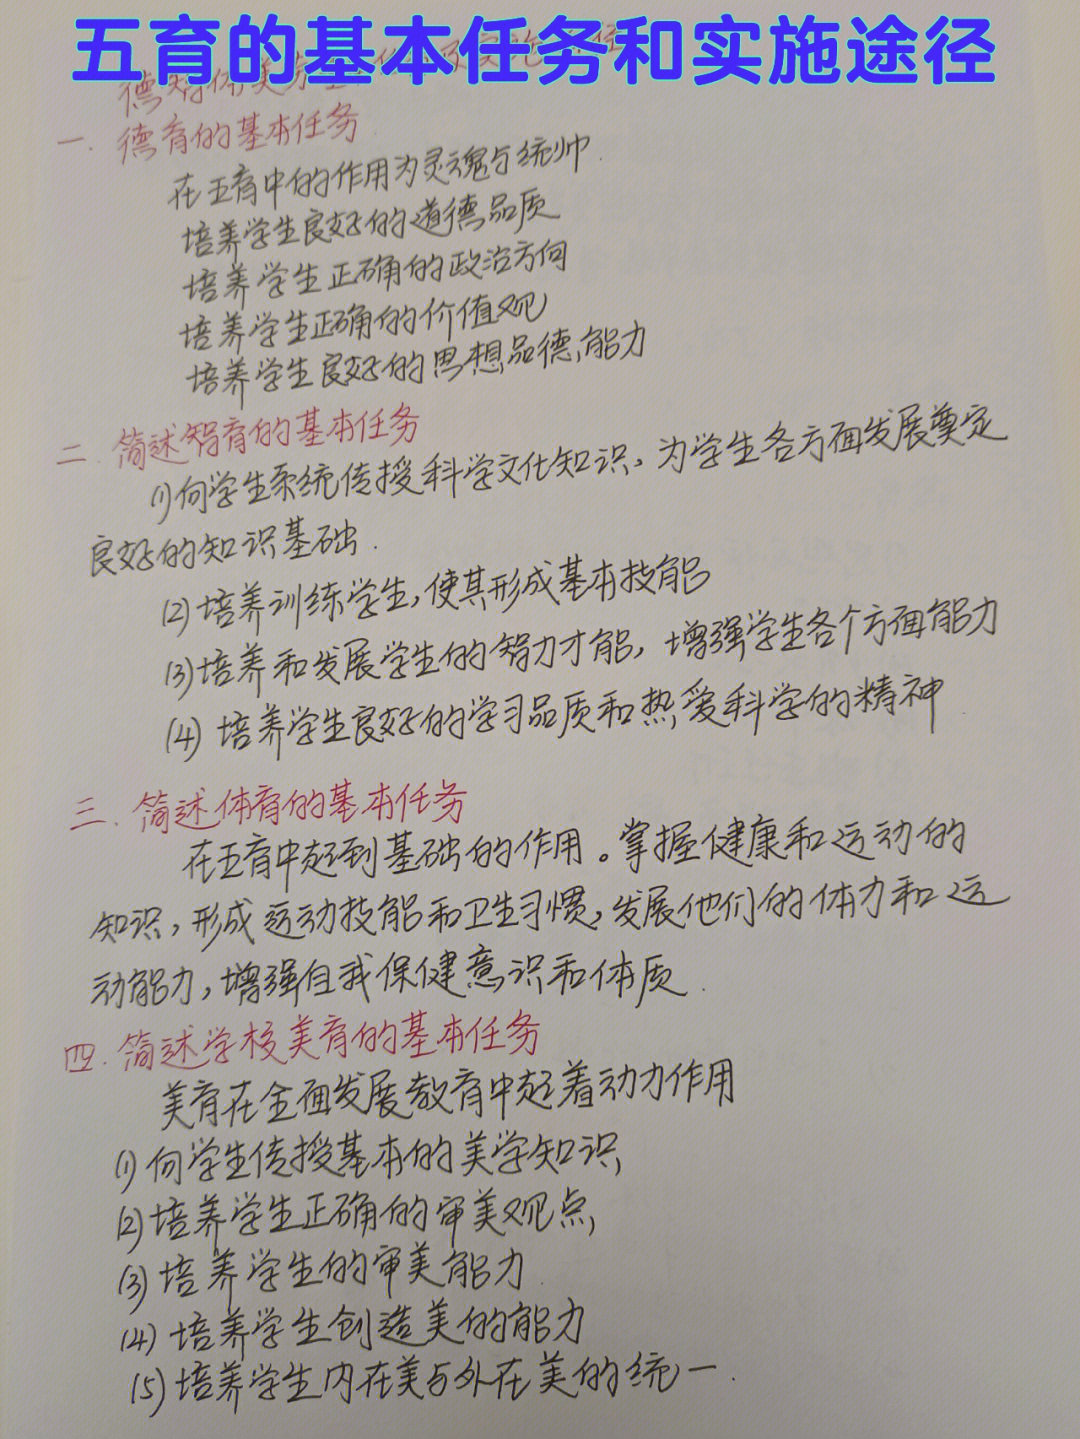 五育的基本任务和实施途径
一. 德育的基本任务
在五育中的作用为灵魂与统帅
培养学生良好的道德品质
培养学生正确的政治方向
培养学生正确的价值观
培养学生良好的思想品德能力
二. 简述智育的基本任务
(1)向学生系统传授科学文化知识，为学生各方面发展奠定
良好的知识基础.
(2)培养训练学生,使其形成基本技能
(3)培养和发展学生的智力才能，增强学生各个方面能力
(4) 培养学生良好的学习品质和热爱科学的精神.
三. 简述体育的基本任务
在五育中起到基础的作用。掌握健康和运动的
知识，形成运动技能和卫生习惯，发展他们的体力和运
动能力，增强自我保健意识和体质.
四. 简述学校美育的基本任务
美育在全面发展教育中起着动力作用
(1)向学生传授基本的美学知识,
(2)培养学生正确的审美观点,
(3)培养学生的审美能力
(4) 培养学生创造美的能力
(5)培养学生内在美与外在美的统一.